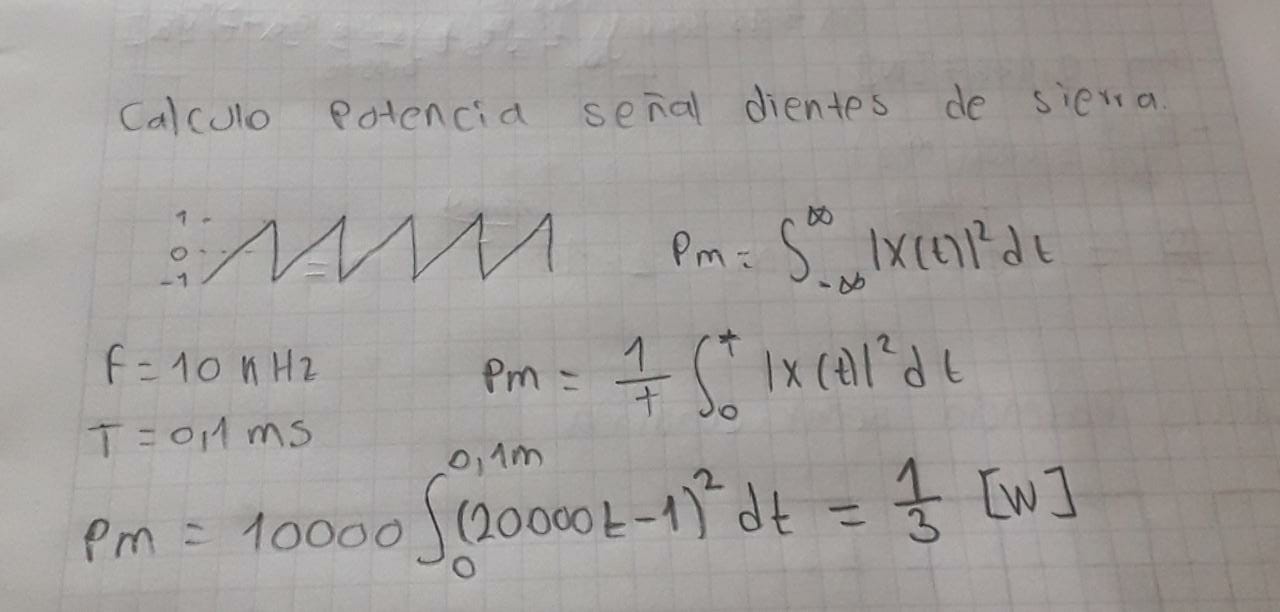 Calculo Potencia señal dientes de sierra.
1
0
-1
Pm = ∫_{-∞}^{∞} |x(t)|² dt
F = 10 KHz
Pm = 1/T ∫_0^T |x(t)|² dt
T = 0,1 ms
Pm = 10000 ∫_0^{0,1m} (20000t-1)² dt = 1/3 [W]